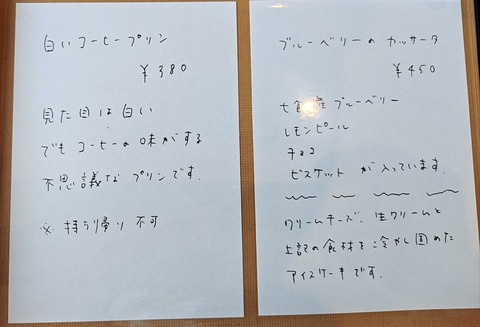 白いコーヒープリン
¥380
見た目は白い
でもコーヒーの味がする
不思議なプリンです。
※ 持ち帰り不可
ブルーベリーの カッサータ
¥450
ブルーベリー
レモンピール
チョコ
ビスケット が入っています。
クリームチーズ、生クリームと
上記の食材を冷やし固めた
アイスケーキです。